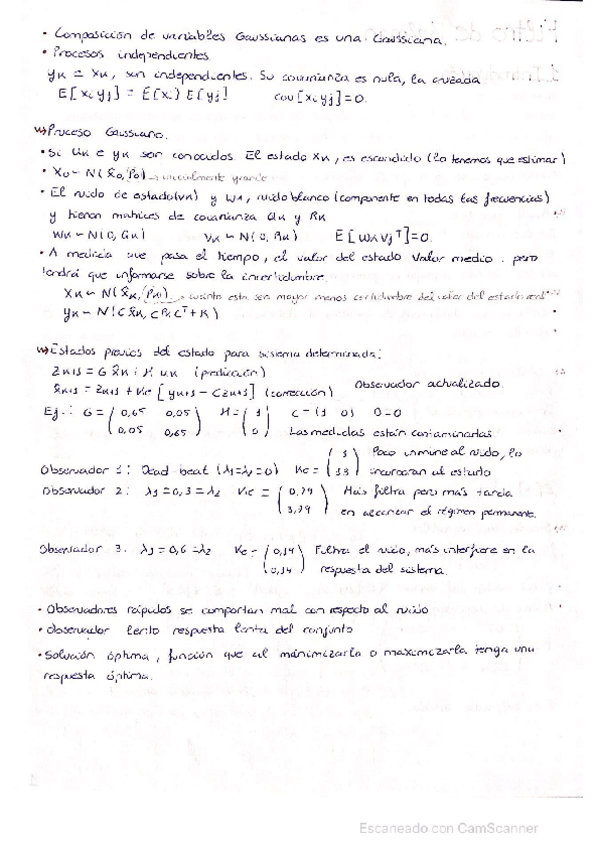 • Composición de variables Gaussianas es una Gaussiana.
• Procesos independientes.
yk = xk, son independientes. Su covarianza es nula, la cruzada
E[xi yj] = E(xi) E[yj]    cov[xi yj]=0.
Proceso Gaussiano.
• Si uk e yk son conocidos. El estado xk, es escondido (lo tenemos que estimar)
• x0 ~ N(x̂0, P0) → inicialmente grande
• El ruido de estado (vk) y wk, ruido blanco (componente en todas las frecuencias)
y tienen matrices de covarianza Qk y Rk
wk ~ N(0, Qk)    vk ~ N(0, Rk)    E[wk vjᵀ]=0.
• A medida que pasa el tiempo, el valor del estado valor medio. pero
tendrá que informarse sobre la incertidumbre.
xk ~ N(x̂k, Pk) → cuanto esta sea mayor menos certidumbre del valor del estado
yk ~ N(C x̂k, C Pk Cᵀ + R)
Estados previos del estado para sistema determinada:
zk+1 = G x̂k + H uk (predicción)
x̂k+1 = zk+1 + Ke [yk+1 - Czk+1] (corrección)    Observador actualizado.
Ej.: G = (0,65 0,05; 0,05 0,65)    H = (1; 0)    C = (1 0)    D=0
Las medidas están contaminadas
Observador 1: Dead-beat (λ1=λ2=0)    Ke = (1; 13)    Poco inmune al ruido, lo
incorporan al estado
Observador 2: λ1=0,3=λ2    Ke = (0,79; 3,79)    Más filtra pero más tarda
en alcanzar el régimen permanente.
Observador 3. λ1=0,6=λ2    Ke = (0,14; 0,14)    Filtra el ruido, más interfiere en la
respuesta del sistema.
• Observadores rápidos se comportan mal con respecto al ruido
• Observador lento respuesta lenta del conjunto
• Solución óptima, función que al minimizarla o maximizarla tenga una
respuesta óptima.
Escaneado con CamScanner